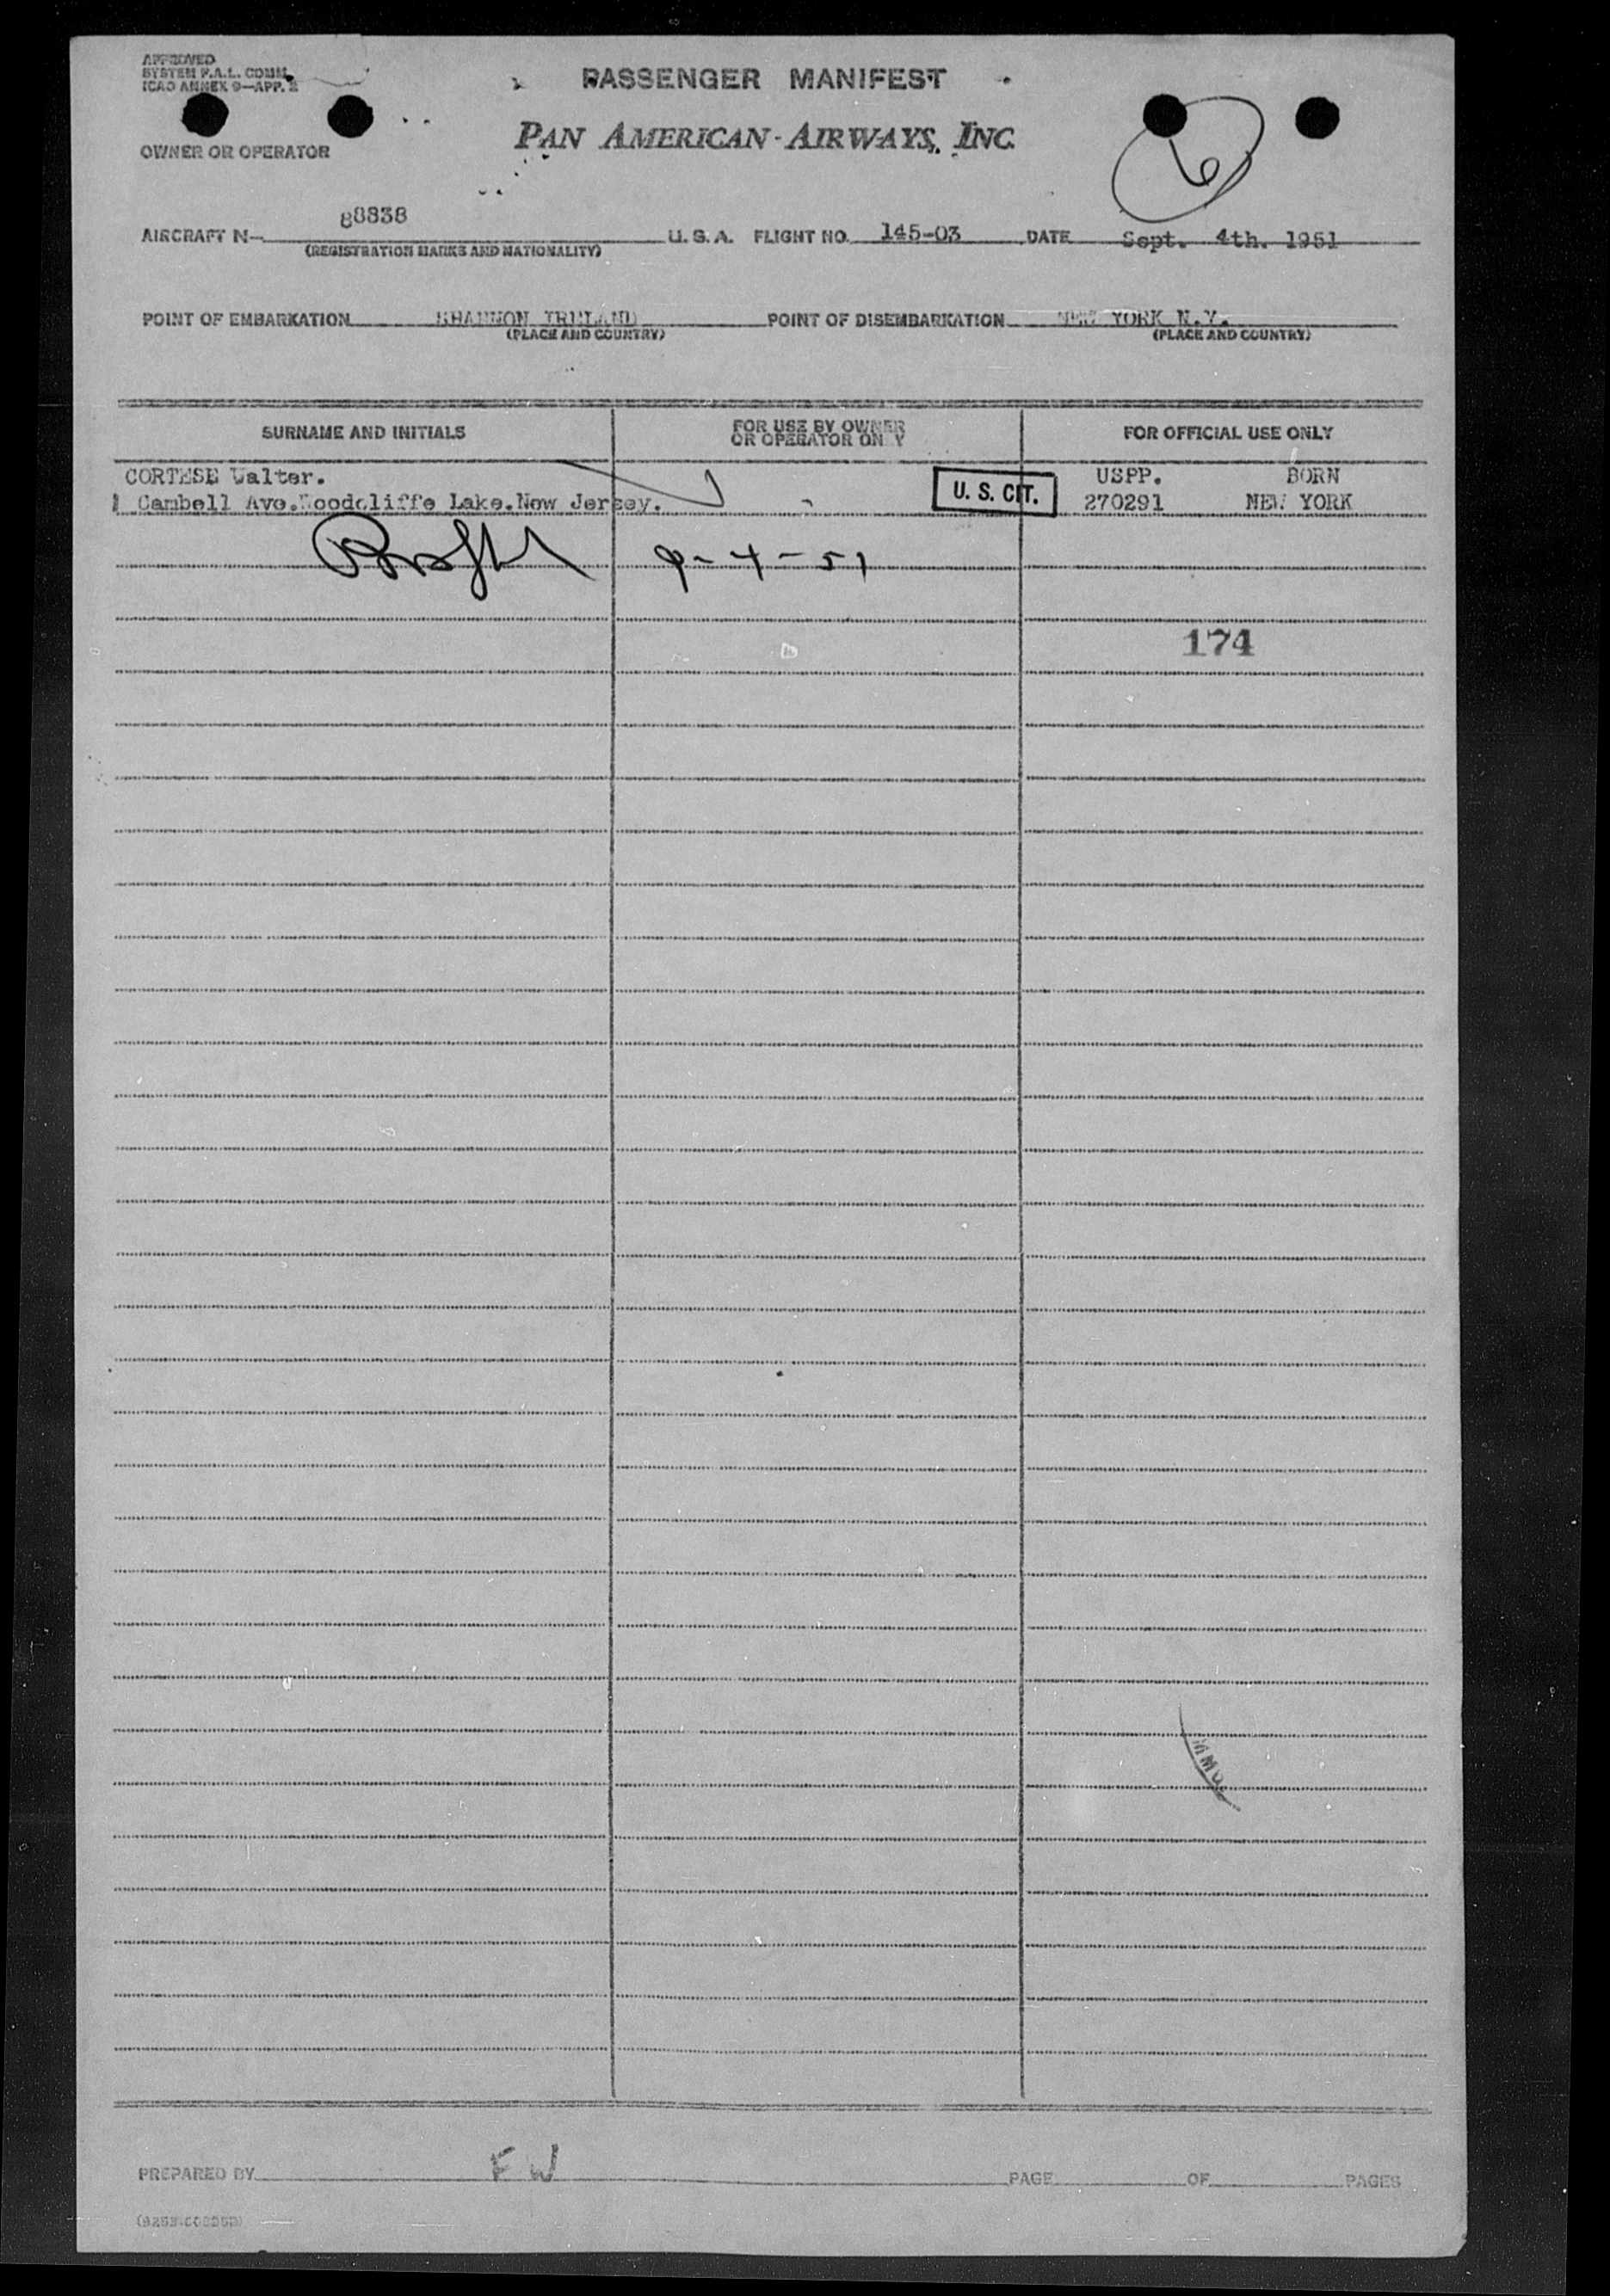 APPROVED
SYSTEM F.A.L. COMM.
ICAO ANNEX 9—APP. 2
PASSENGER MANIFEST
PAN AMERICAN AIRWAYS, INC.
6
OWNER OR OPERATOR
AIRCRAFT N— 88838 U.S.A. FLIGHT NO. 145-03 DATE Sept. 4th. 1951
(REGISTRATION MARKS AND NATIONALITY)
POINT OF EMBARKATION SHANNON IRELAND POINT OF DISEMBARKATION NEW YORK N.Y.
(PLACE AND COUNTRY) (PLACE AND COUNTRY)
SURNAME AND INITIALS FOR USE BY OWNER OR OPERATOR ONLY FOR OFFICIAL USE ONLY
CORTESE Walter. USPP. BORN
1 Cambell Ave.Woodcliffe Lake.New Jersey. U. S. CIT. 270291 NEW YORK
9-4-51
174
PREPARED BY FW PAGE OF PAGES